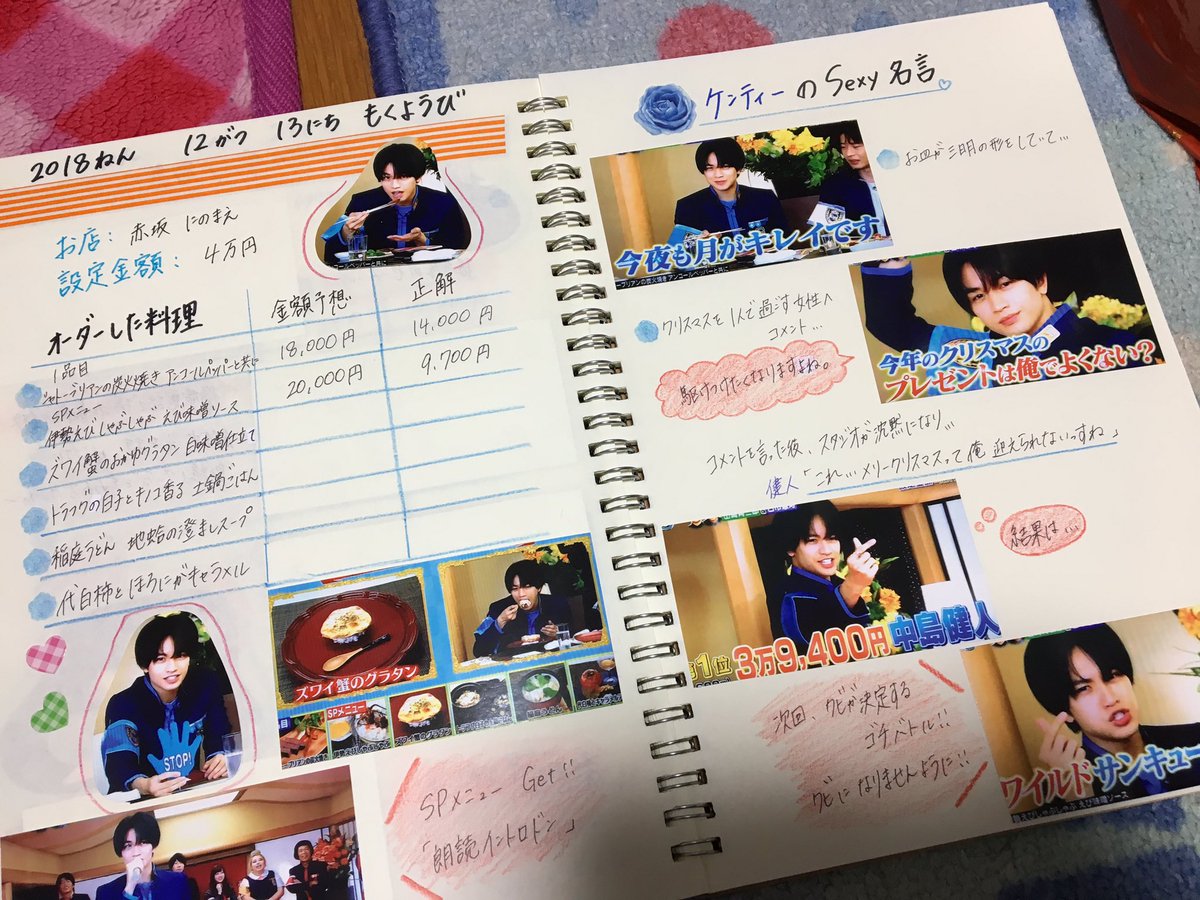 2018ねん 12がつ 13にち もくようび
お店: 赤坂 にのまえ
設定金額: 4万円
オーダーした料理 金額予想 正解
1品目
シャトーブリアンの炭火焼き アンコールペッパーと共に 18,000円 14,000円
SPメニュー
伊勢えびしゃぶしゃぶ えび味噌ソース 20,000円 9,700円
ズワイ蟹のおかゆグラタン 白味噌仕立て
トラフグの白子とキノコ香る 土鍋ごはん
稲庭うどん 地蛤の澄ましスープ
代白柿とほろにがキャラメル
STOP!
ズワイ蟹のグラタン
SPメニュー
SPメニュー Get!!
「朗読イントロドン」
ケンティーのSexy名言
お皿が三日月の形をしていて…
今夜も月がキレイです
クリスマスを1人で過す女性へ
コメント…
駆けつけたくなりますよね。
今年のクリスマスの
プレゼントは俺でよくない?
コメントを言った後、スタジオが沈黙になり…
健人「これ…メリークリスマスって俺 迎えられないっすね」
結果は…
第1位 3万9,400円 中島健人
次回、クビが決定する
ゴチバトル!!
クビになりませんように!!
ワイルドサンキュー
伊勢えびしゃぶしゃぶ えび味噌ソース